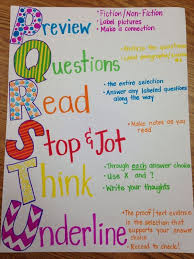 Preview
• Fiction/Non-Fiction
• Label pictures
• Make a connection
Questions
the questions
Read
• the entire selection
• Answer any labeled questions
along the way
Stop & Jot
• Make notes as you
read
Think
• Through each answer choice
• Use X and ?
• Write your thoughts
Underline
• The proof/text evidence
in the selection that
supports your answer
choice
• Reread to check!